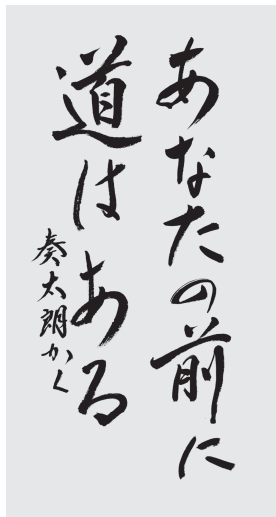 あなたの前に
道はある
奏太朗かく